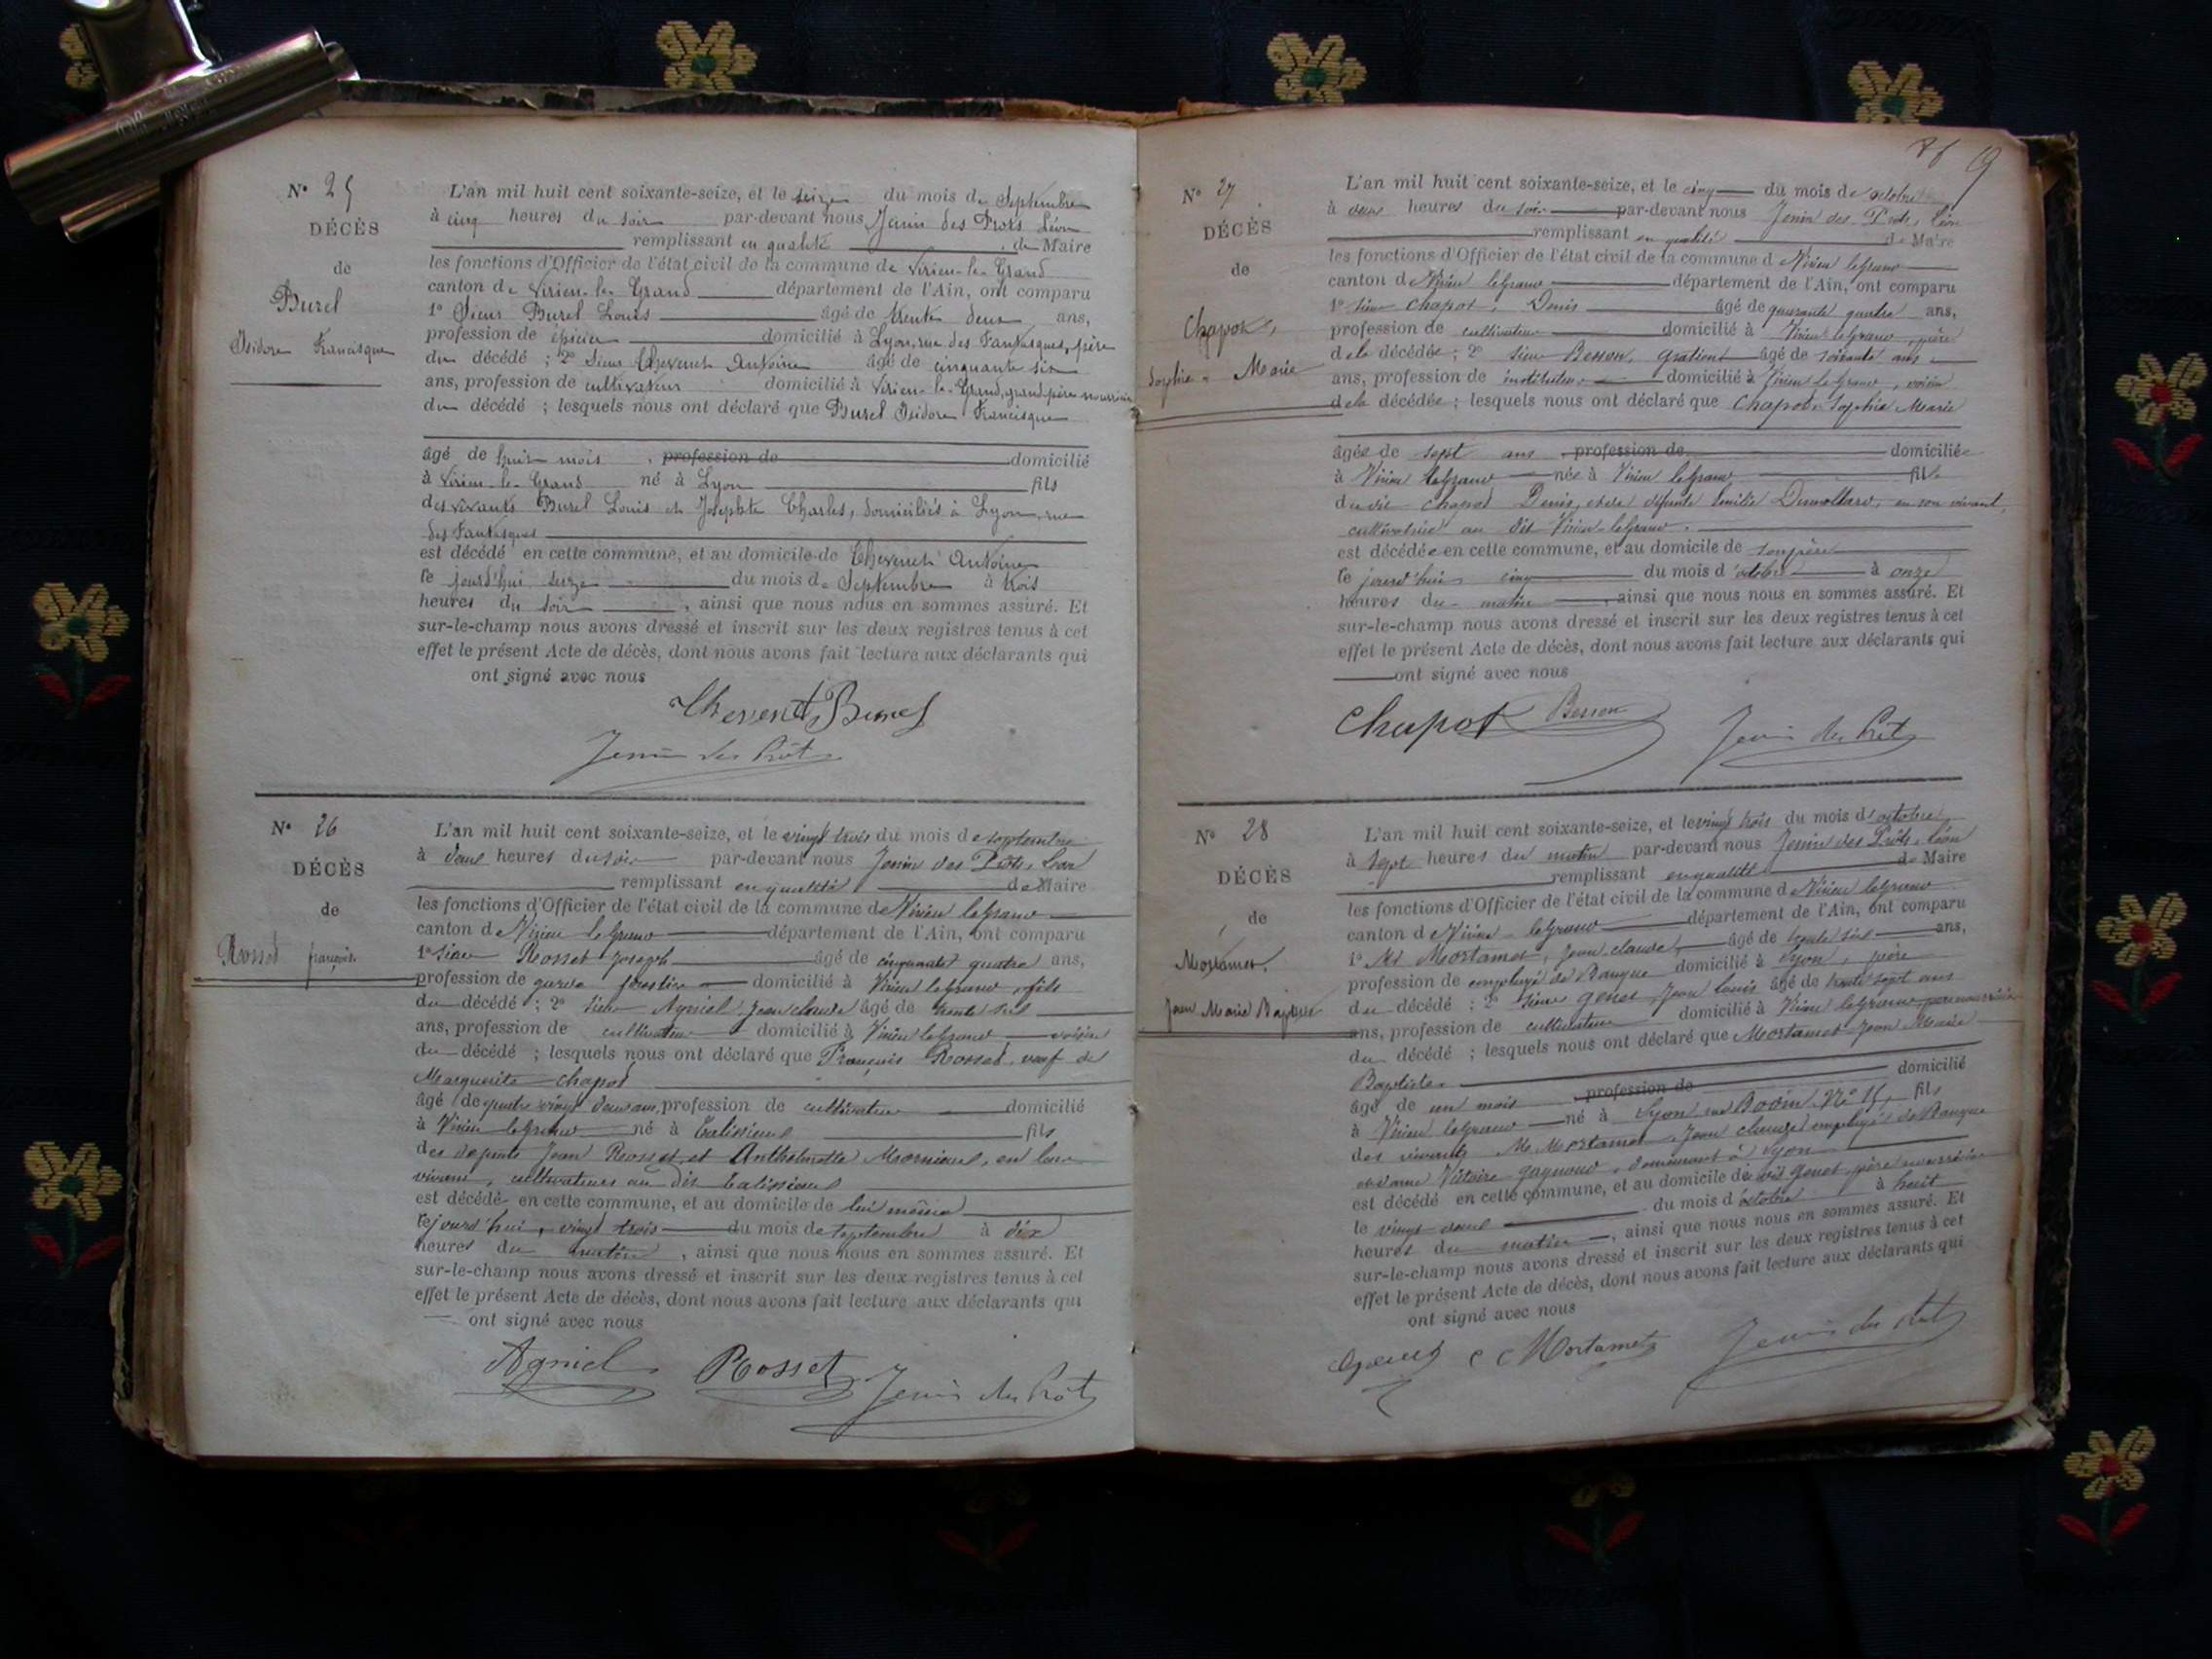 N° 25
DÉCÈS
de
Burel
Isidore Francisque
L'an mil huit cent soixante-seize, et le seize du mois de Septembre
à cinq heures du soir par-devant nous Jenin des Prots Léon
remplissant en qualité de Maire
les fonctions d'Officier de l'état civil de la commune de Virieu-le-Grand
canton de Virieu-le-Grand département de l'Ain, ont comparu
1° Sieur Burel Louis âgé de trente deux ans,
profession de épicier domicilié à Lyon, rue des Fantasques, père
du décédé ; 2° Sieur Thevenet Antoine âgé de cinquante six
ans, profession de cultivateur domicilié à Virieu-le-Grand, grand-père nourricier
du décédé ; lesquels nous ont déclaré que Burel Isidore Francisque
âgé de huit mois , profession de domicilié
à Virieu-le-Grand né à Lyon fils
des vivants Burel Louis et Josephte Charles, domiciliés à Lyon, rue
des Fantasques
est décédé en cette commune, et au domicile de Thevenet Antoine
le jourd'hui seize du mois de Septembre à trois
heures du soir , ainsi que nous nous en sommes assuré. Et
sur-le-champ nous avons dressé et inscrit sur les deux registres tenus à cet
effet le présent Acte de décès, dont nous avons fait lecture aux déclarants qui
ont signé avec nous
Thevenet Burel
Jenin des Prots
N° 26
DÉCÈS
de
Rosset françois.
L'an mil huit cent soixante-seize, et le vingt trois du mois de septembre
à deux heures du soir par-devant nous Jenin des Prots, Léon
remplissant en qualité de Maire
les fonctions d'Officier de l'état civil de la commune de Virieu legrand
canton de Virieu le Grand département de l'Ain, ont comparu
1° Sieur Rosset Joseph âgé de cinquante quatre ans,
profession de garde forestier domicilié à Virieu legrand, fils
du décédé ; 2° Sieur Agniel Jean claude âgé de trente six
ans, profession de cultivateur domicilié à Virieu legrand voisin
du décédé ; lesquels nous ont déclaré que François Rosset, veuf de
Marguerite chapot
âgé de quatre vingt deux ans, profession de cultivateur domicilié
à Virieu legrand né à Talissieu fils
des defunts Jean Rosset et Anthelmette en leur
vivant, cultivateurs au dit Talissieu
est décédé en cette commune, et au domicile de lui même
le jourd'hui, vingt trois du mois de septembre à dix
heures du matin , ainsi que nous nous en sommes assuré. Et
sur-le-champ nous avons dressé et inscrit sur les deux registres tenus à cet
effet le présent Acte de décès, dont nous avons fait lecture aux déclarants qui
ont signé avec nous
Agniel Rosset Jenin des Prots
N° 27
DÉCÈS
de
Chapot,
Sophie Marie
L'an mil huit cent soixante-seize, et le cinq du mois de octobre
à deux heures du soir par-devant nous Jenin des Prots, Léon
remplissant en qualité de Maire
les fonctions d'Officier de l'état civil de la commune d Virieu legrand
canton d Virieu legrand département de l'Ain, ont comparu
1° Sieur Chapot, Denis âgé de quarante quatre ans,
profession de cultivateur domicilié à Virieu legrand, père
de la décédée ; 2° Sieur Besson, gratient âgé de soixante ans
ans, profession de instituteur domicilié à Virieu legrand, voisin
de la décédée ; lesquels nous ont déclaré que Chapot Sophie Marie
âgée de sept ans , profession de domiciliée
à Virieu legrand née à Virieu legrand fille
du dit chapot Denis, et de défunte Emilie en son vivant,
cultivatrice au dit Virieu-legrand.
est décédée en cette commune, et au domicile de son père
le jourd'hui cinq du mois d'octobre à onze
heures du matin , ainsi que nous nous en sommes assuré. Et
sur-le-champ nous avons dressé et inscrit sur les deux registres tenus à cet
effet le présent Acte de décès, dont nous avons fait lecture aux déclarants qui
ont signé avec nous
Chapot Besson Jenin des Prots
N° 28
DÉCÈS
de
Mortamet.
Jean Marie Baptiste
L'an mil huit cent soixante-seize, et le vingt trois du mois d'octobre
à sept heures du matin par-devant nous Jenin des Prots, Léon
remplissant en qualité de Maire
les fonctions d'Officier de l'état civil de la commune d Virieu legrand
canton d Virieu legrand département de l'Ain, ont comparu
1° Mr Mortamet, Jean claude, âgé de trente six ans,
profession de employé de Banque domicilié à Lyon, père
du décédé ; 2° Sieur genet Jean Louis âgé de trente sept ans
ans, profession de cultivateur domicilié à Virieu legrand père nourricier
du décédé ; lesquels nous ont déclaré que Mortamet Jean Marie
Baptiste
âgé de un mois , profession de domicilié
à Virieu legrand né à Lyon rue Bodin N° 15, fils
des vivants Mr Mortamet Jean claude employé de Banque
et dame Victoire gagnoud, demeurant à Lyon
est décédé en cette commune, et au domicile de dit genet, père nourricier
le vingt deux du mois d'octobre à huit
heures du matin , ainsi que nous nous en sommes assuré. Et
sur-le-champ nous avons dressé et inscrit sur les deux registres tenus à cet
effet le présent Acte de décès, dont nous avons fait lecture aux déclarants qui
ont signé avec nous
Genet C Mortamet Jenin des Prots